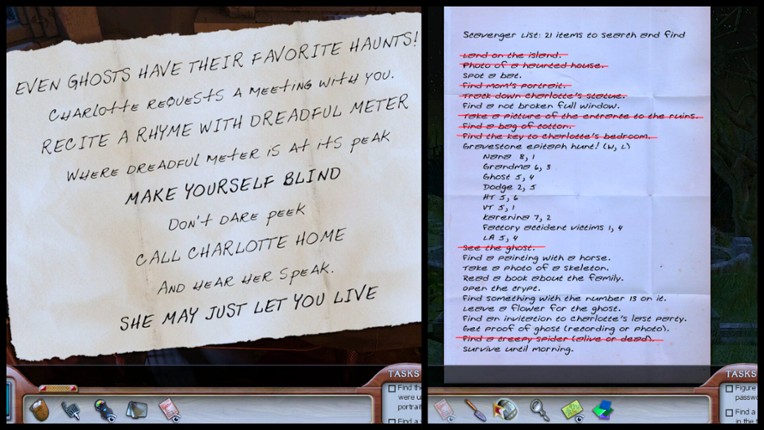 EVEN GHOSTS HAVE THEIR FAVORITE HAUNTS!
CHARLOTTE REQUESTS A MEETING WITH YOU.
RECITE A RHYME WITH DREADFUL METER
WHERE DREADFUL METER IS AT ITS PEAK
MAKE YOURSELF BLIND
DON'T DARE PEEK
CALL CHARLOTTE HOME
AND HEAR HER SPEAK.
SHE MAY JUST LET YOU LIVE
TASKS
Find th
were u
portrai
Find a
Scavenger List: 21 items to search and find
Land on the island.
Photo of a haunted house.
Spot a bat.
Find mom's portrait.
Track down Charlotte's statue.
Find a not broken full window.
Take a picture of the entrance to the ruins.
Find a bag of cotton.
Find the key to Charlotte's bedroom.
Gravestone epitaph hunt! (W, L)
Nana 8, 1
Grandma 6, 3
Ghost 5, 4
Dodge 2, 5
HT 5, 6
VT 5, 1
Karenina 7, 2
Factory accident victims 1, 4
LA 5, 4
See the ghost.
Find a painting with a horse.
Take a photo of a skeleton.
Read a book about the family.
Open the crypt.
Find something with the number 13 on it.
Leave a flower for the ghost.
Find an invitation to Charlotte's last party.
Get proof of ghost (recording or photo).
Find a creepy spider (alive or dead).
Survive until morning.
TASKS
Figure
passwo
Find a
in the